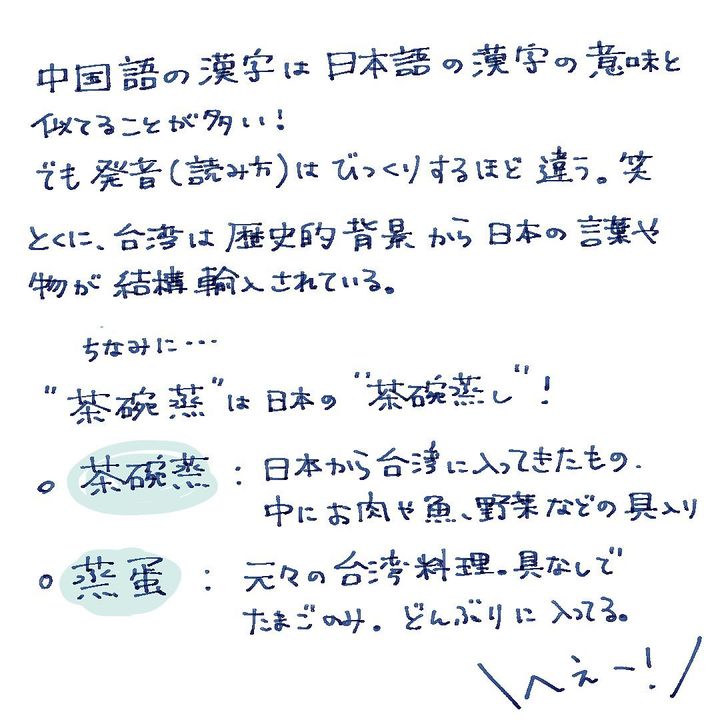 中国語の漢字は日本語の漢字の意味と
似てることが多い!
でも発音(読み方)はびっくりするほど違う。笑
とくに、台湾は歴史的背景から日本の言葉や
物が結構輸入されている。
ちなみに…
"茶碗蒸"は日本の"茶碗蒸し"!
○ 茶碗蒸 : 日本から台湾に入ってきたもの.
中にお肉や魚、野菜などの具入り
○ 蒸蛋 : 元々の台湾料理。具なしで
たまごのみ。どんぶりに入ってる。
\へぇー!/